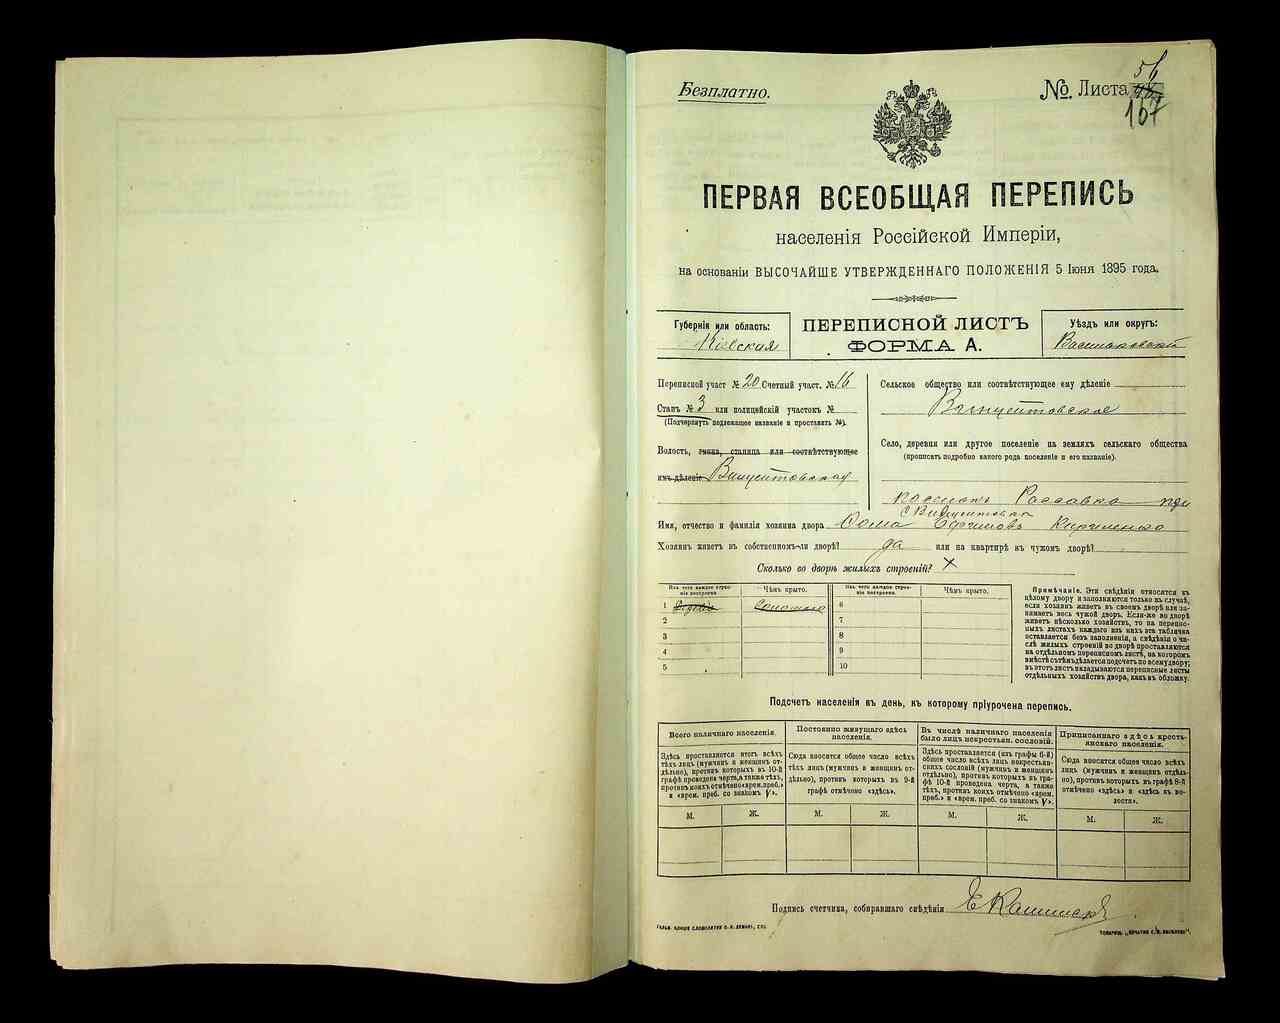 Безплатно.
№. Листа 56
107
ПЕРВАЯ ВСЕОБЩАЯ ПЕРЕПИСЬ
населенія Россійской Имперіи,
на основаніи ВЫСОЧАЙШЕ УТВЕРЖДЕННАГО ПОЛОЖЕНІЯ 5 Іюня 1895 года.
Губернія или область:
Кіевская
ПЕРЕПИСНОЙ ЛИСТЪ
ФОРМА А.
Уѣздъ или округъ:
Васильковскій
Переписной участ № 20 Счетный участ. № 16
Станъ № 3 или полицейскій участокъ №
(Подчеркнуть подлежащее названіе и проставить №).
Волость, гмина, станица или соотвѣтствующее
имъ дѣленіе Винцентовская
Сельское общество или соотвѣтствующее ему дѣленіе
Винцентовское
Село, деревня или другое поселеніе на земляхъ сельскаго общества
(прописать подробно какого рода поселеніе и его названіе).
Рассавка при
с Винцентовка
Имя, отчество и фамилія хозяина двора Сома Ефимовъ Кириленко
Хозяинъ живетъ въ собственномъ-ли дворѣ? да или на квартирѣ къ чужомъ дворѣ?
Сколько во дворѣ жилыхъ строеній? X
Изъ чего каждое строеніе построено
Чѣмъ крыто.
Изъ чего каждое строеніе построено
Чѣмъ крыто.
1 Соломою 6
2 7
3 8
4 9
5 10
Примѣчаніе. Эти свѣдѣнія относятся къ
цѣлому двору и заполняются только въ случаѣ,
если хозяинъ живетъ въ своемъ дворѣ или занимаетъ
весь чужой дворъ. Если-же во дворѣ
живетъ нѣсколько хозяйствъ, то на переписныхъ
листахъ каждаго изъ нихъ эта табличка
оставляется безъ заполненія, а свѣдѣнія о числѣ
жилыхъ строеній во дворѣ проставляются
на отдѣльномъ переписномъ листѣ, на которомъ
вмѣстѣ съ тѣмъ дѣлается подсчетъ по всему двору;
въ этотъ листъ вкладываются переписные листы
отдѣльныхъ хозяйствъ двора, какъ въ обложку.
Подсчетъ населенія въ день, къ которому пріурочена перепись.
Всего наличнаго населенія.
Здѣсь проставляется итогъ всѣхъ
тѣхъ лицъ (мужчинъ и женщинъ отдѣльно),
противъ которыхъ въ 10-й
графѣ проведена черта, а также тѣхъ,
противъ коихъ отмѣчено «врем. преб.»
и «врем. преб. со знакомъ V».
Постоянно живущаго здѣсь
населенія.
Сюда вносятся общее число всѣхъ
тѣхъ лицъ (мужчинъ и женщинъ отдѣльно),
противъ которыхъ въ 9-й
графѣ отмѣчено «здѣсь».
Въ числѣ наличнаго населенія
было лицъ некрестьян. сословій.
Здѣсь проставляется (изъ графы 6-й)
общее число всѣхъ лицъ некрестьянскихъ
сословій (мужчинъ и женщинъ
отдѣльно), противъ которыхъ въ графѣ
10-й проведена черта, а также
тѣхъ, противъ коихъ отмѣчено «врем.
преб.» и «врем. преб. со знакомъ V».
Приписаннаго здѣсь крестьянскаго
населенія.
Сюда вносятся общее число всѣхъ
лицъ (мужчинъ и женщинъ отдѣльно),
противъ которыхъ въ графѣ 8-й
отмѣчено «здѣсь» и «здѣсь въ волости».
М. Ж. М. Ж. М. Ж. М. Ж.
Подпись счетчика, собиравшаго свѣдѣнія